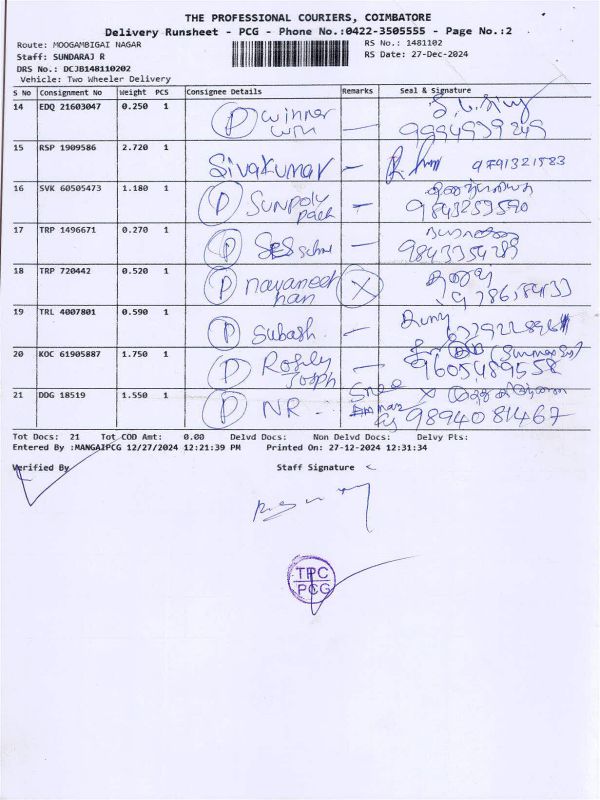 THE PROFESSIONAL COURIERS, COIMBATORE
Delivery Runsheet - PCG - Phone No.:0422-3505555 - Page No.:2
Route: MOOGAMBIGAI NAGAR RS No.: 1481102
Staff: SUNDARAJ R RS Date: 27-Dec-2024
DRS No.: DCJB148110202
Vehicle: Two Wheeler Delivery
S No Consignment No Weight PCS Consignee Details Remarks Seal & Signature
14 EDQ 21603047 0.250 1 P winner
15 RSP 1909586 2.720 1 Sivakumar – 9791321583
16 SVK 60505473 1.180 1 P Sunpoly – 9843253590
pack
17 TRP 1496671 0.270 1 P –
18 TRP 720442 0.520 1 P X
19 TRL 4007801 0.590 1 P Subash. –
20 KOC 61905887 1.750 1 P – 9605489558
21 DDG 18519 1.550 1 P NR – 9894081467
Tot Docs: 21 Tot COD Amt: 0.00 Delvd Docs: Non Delvd Docs: Delvy Pts:
Entered By :MANGAIPCG 12/27/2024 12:21:39 PM Printed On: 27-12-2024 12:31:34
Verified By Staff Signature
TPC
PCG